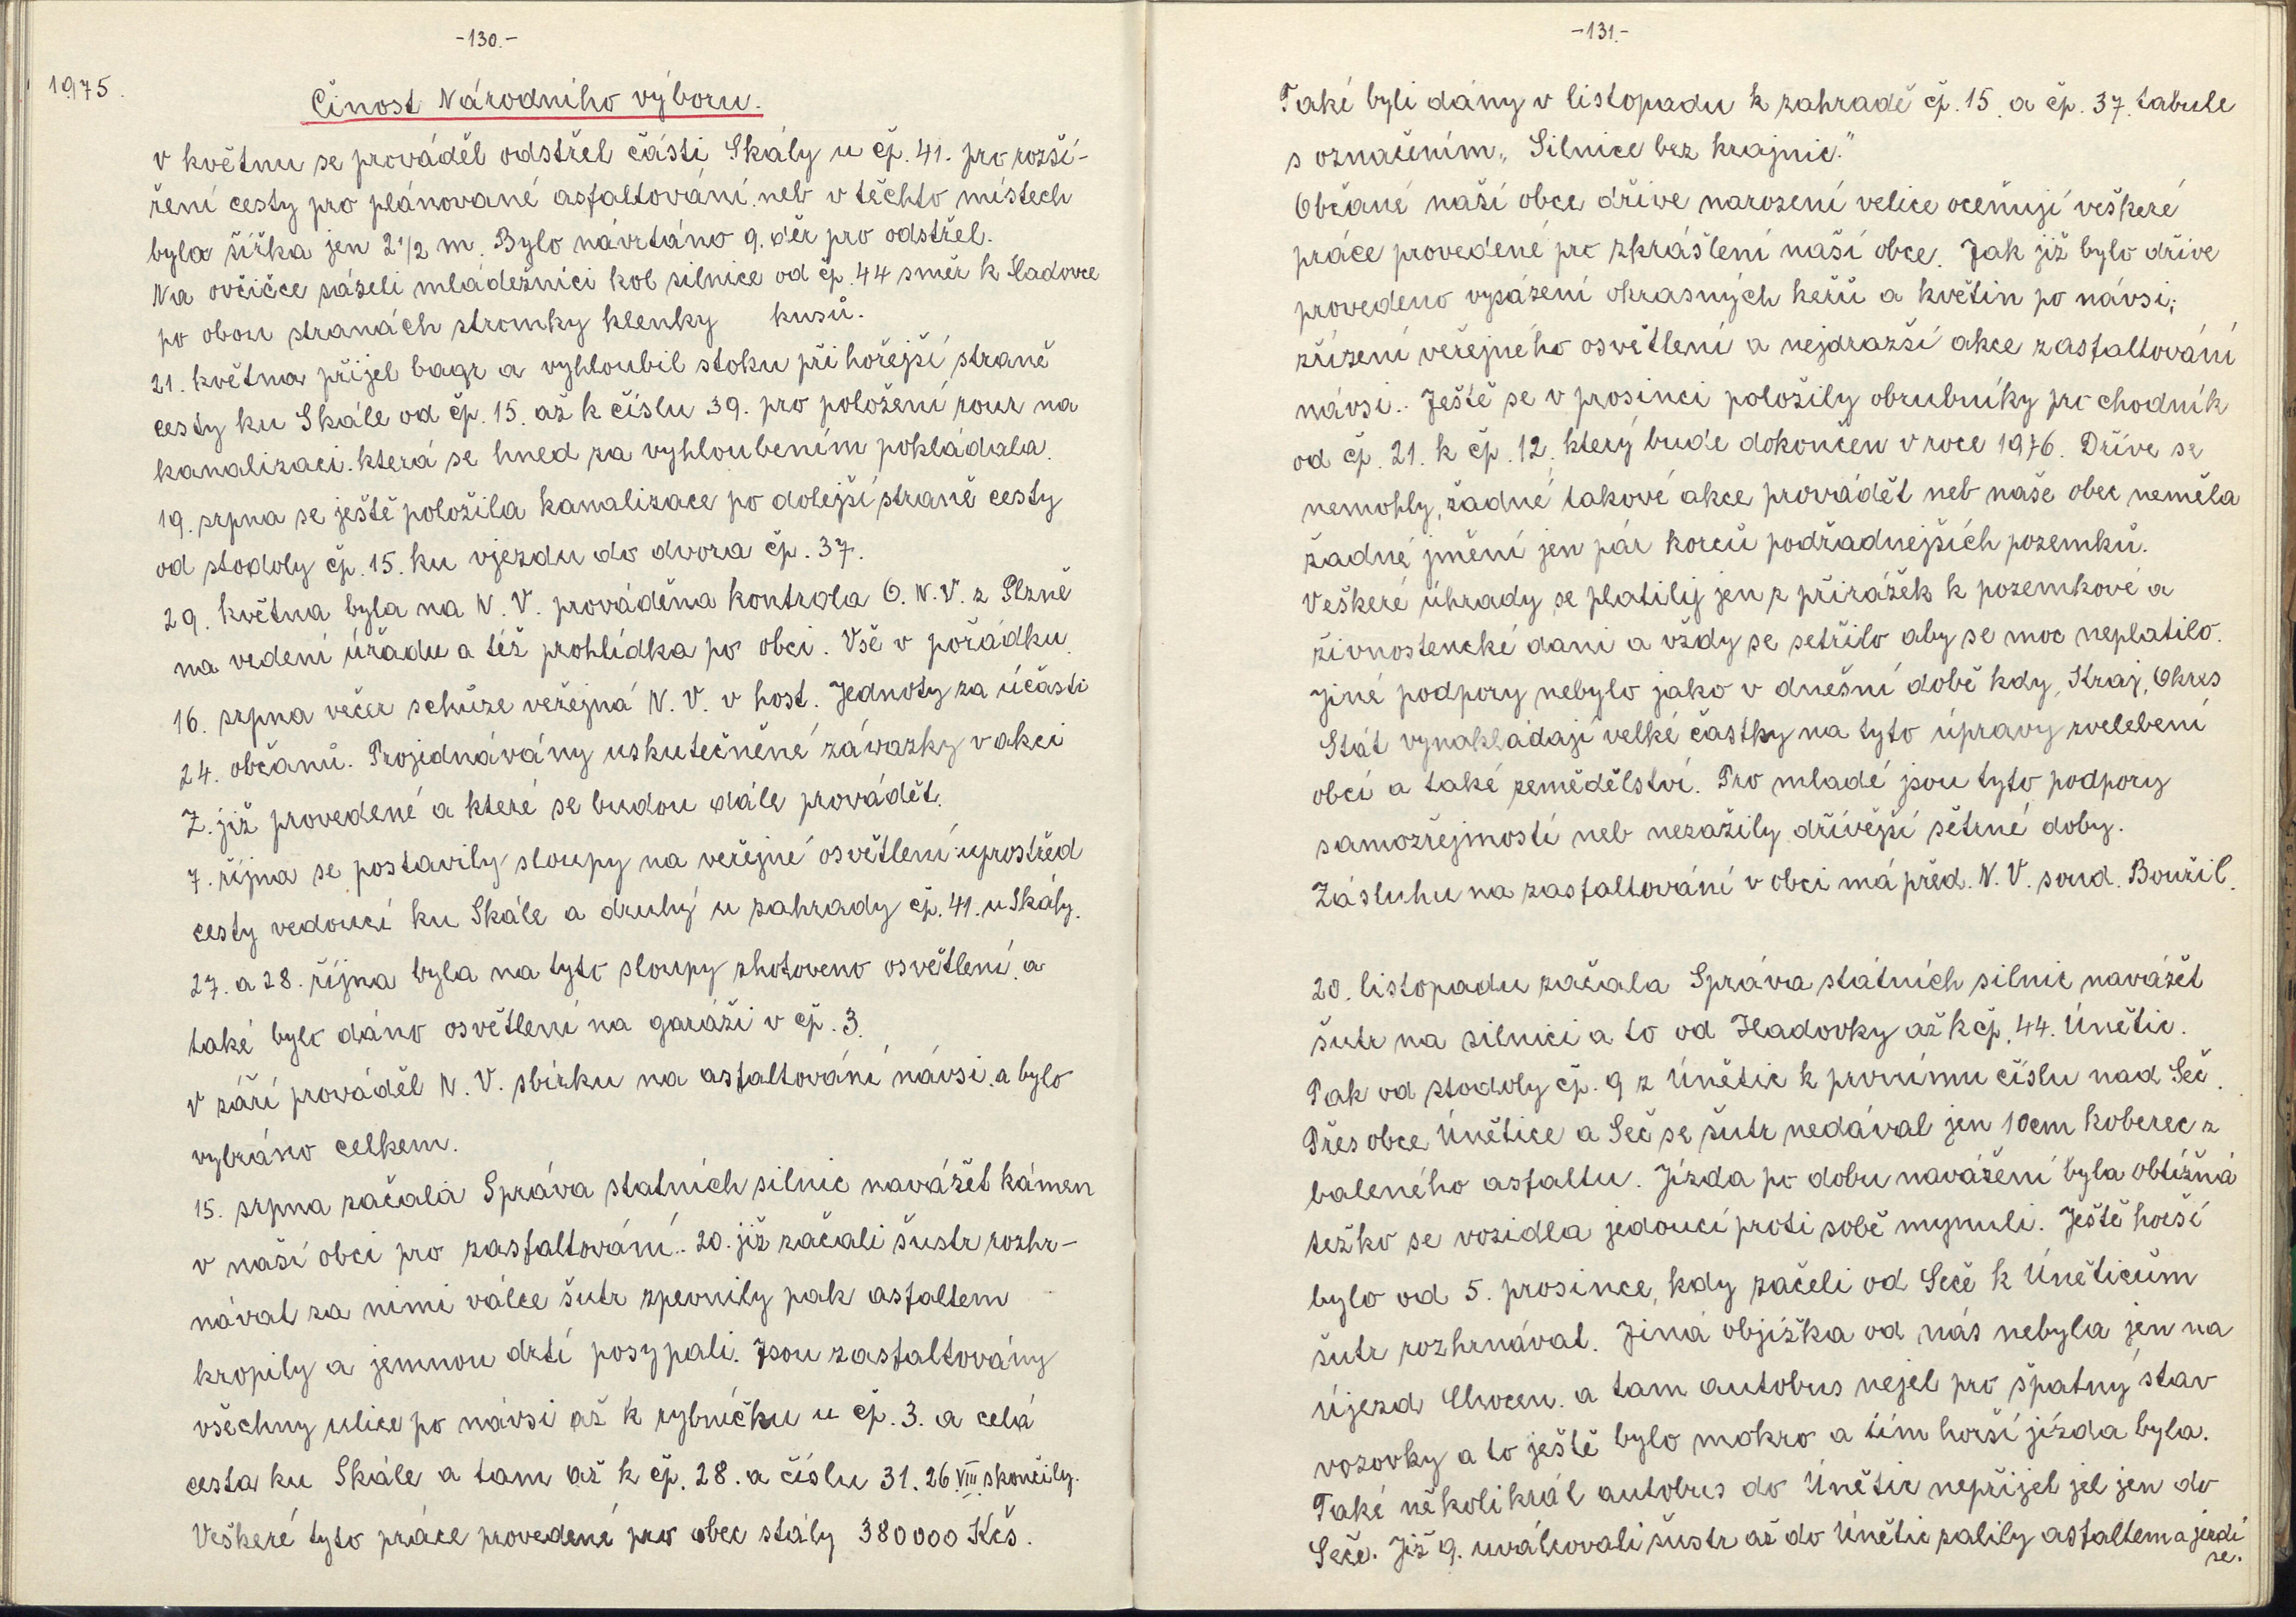 -130.-
1975.
Činost Národního výboru.
v květnu se prováděl odstřel části Skály u čp. 41. pro rozší-
ření cesty pro plánované asfaltování neb v těchto místech
byla šířka jen 2 1/2 m. Bylo návrtáno 9. děr pro odstřel.
Na ovčičce sázeli mládežníci kol silnice od čp. 44 směr k Hadovce
po obou stranách stromky klenky kusů.
21. května přijel bagr a vyhloubil stoku při hořejší straně
cesty ku Skále od čp. 15. až k číslu 39. pro položení rour na
kanalizaci. která se hned za vyhloubením pokládala.
19. srpna se ještě položila kanalizace po dolejší straně cesty
od stodoly čp. 15. ku vjezdu do dvora čp. 37.
29. května byla na N. V. prováděna kontrola O. N. V. z Plzně
na vedení úřadu a též prohlídka po obci. Vše v pořádku.
16. srpna večer schůze veřejná N. V. v host. Jednoty za účasti
24. občanů. Projednávány uskutečněné závazky v akci
Z. již provedené a které se budou dále provádět.
7. října se postavily sloupy na veřejné osvětlení uprostřed
cesty vedoucí ku Skále a druhý u zahrady čp. 41. u Skály.
27. a 28. října byla na tyto sloupy zhotoveno osvětlení. a
také bylo dáno osvětlení na garáži v čp. 3.
V září prováděl N. V. sbírku na asfaltování návsi. a bylo
vybráno celkem.
15. srpna začala Správa statních silnic navážet kámen
v naší obci pro zasfaltování.. 20. již začali šustr rozhr-
návat za nimi válce šutr zpevnily pak asfaltem
kropily a jemnou drtí posypali. Jsou zasfaltovány
všechny ulice po návsi až k rybníčku u čp. 3. a celá
cesta ku Skále a tam až k čp. 28. a číslu 31. 26. VIII. skončily.
Veškeré tyto práce provedené pro obec stály 380000 Kčs.
-131.-
Také byli dány v listopadu k zahradě čp. 15. a čp. 37. tabule
s označením „ Silnice bez krajnic."
Občané naší obce dříve narození velice oceňují veškeré
práce provedené pro zkrášlení naší obce. Jak již bylo dříve
provedeno vysázení okrasných keřů a květin po návsi;
zřízení veřejného osvětlení a nejdražší akce zasfaltování
návsi.. Ještě se v prosinci položily obrubníky pro chodník
od čp. 21. k čp. 12. který bude dokončen v roce 1976. Dříve se
nemohly, žadné takové akce provádět neb naše obec neměla
žadné jmění jen pár korců podřadnejšich pozemků.
Veškeré úhrady se platily jen z přirážek k pozemkové a
živnostencké dani a vždy se setřilo aby se moc neplatilo.
Jiné podpory nebylo jako v dnešní době kdy, Kraj, Okres
Stát vynakladají velké častky na tyto úpravy zvelebení
obcí a také zemědělství. Pro mladé jsou tyto podpory
samozřejmostí neb nezažily dřívější šetrné doby.
Zásluhu na zasfaltování v obci má před. N. V. soud. Bouřil.
20. listopadu začala Správa státních silnic navážět
šutr na silnici a to od Hadovky až k čp. 44. Únětic.
Pak od stodoly čp. 9 z Únětic k prvnímu číslu nad Seč.
Přes obce, Únětice a Seč se šutr nedával jen 10cm koberec z
baleného asfaltu. Jízda po dobu navážení byla obtížná
težko se vozidla jedoucí proti sobě mynuli. Ještě horší
bylo od 5. prosince, kdy začeli od Seče k Úněticům
šutr rozhrnávat. Jiná objížka od nás nebyla jen na
Újezd Chocen. a tam autobus nejel pro špatný stav
vozovky a to ještě bylo mokro a tím horší jízda byla.
Také několikrát autobus do Únětic nepřijel jel jen do
Seče. Již 9. uválcovali šustr až do Únětic zalily asfaltem a jezdí
se.